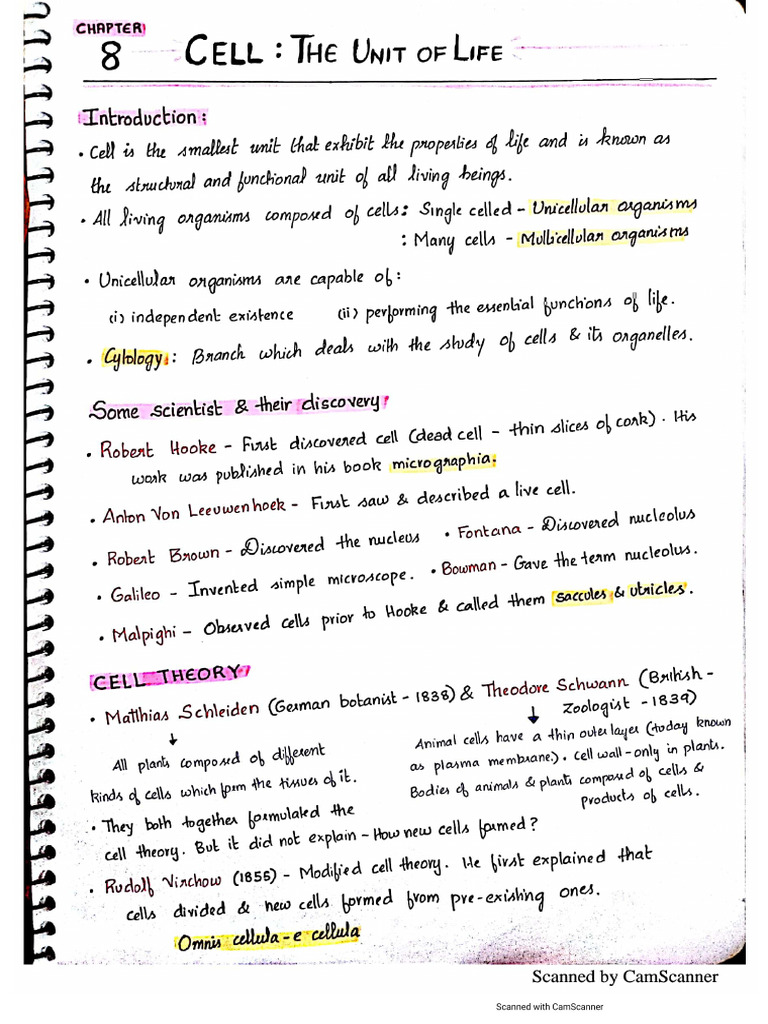 CHAPTER
8
CELL : THE UNIT OF LIFE
Introduction :
• Cell is the smallest unit that exhibit the properties of life and is known as
the structural and functional unit of all living beings.
• All living organisms composed of cells : Single celled - Unicellular organisms
: Many cells - Multicellular organisms
• Unicellular organisms are capable of :
(i) independent existence (ii) performing the essential functions of life.
• Cytology : Branch which deals with the study of cells & its organelles.
Some scientist & their discovery!
• Robert Hooke - First discovered cell (dead cell - thin slices of cork). His
work was published in his book micrographia.
• Anton Von Leeuwenhoek - First saw & described a live cell.
• Robert Brown - Discovered the nucleus • Fontana - Discovered nucleolus
• Galileo - Invented simple microscope. • Bowman - Gave the term nucleolus.
• Malpighi - Observed cells prior to Hooke & called them saccules & utricles.
CELL THEORY
• Matthias Schleiden (German botanist - 1838) & Theodore Schwann (British -
Zoologist - 1839)
All plants composed of different
kinds of cells which form the tissues of it.
Animal cells have a thin outer layer (today known
as plasma membrane). Cell wall - only in plants.
Bodies of animals & plants composed of cells &
products of cells.
• They both together formulated the
cell theory. But it did not explain - How new cells formed?
• Rudolf Virchow (1855) - Modified cell theory. He first explained that
cells divided & new cells formed from pre-existing ones.
Omnis cellula - e cellula
Scanned by CamScanner
Scanned with CamScanner